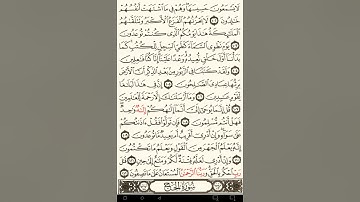 لَا يَسْمَعُونَ حَسِيسَهَا وَهُمْ فِي مَا اشْتَهَتْ أَنفُسُهُمْ
خَٰلِدُونَ لَا يَحْزُنُهُمُ الْفَزَعُ الْأَكْبَرُ وَتَتَلَقَّىٰهُمُ
الْمَلَٰٓئِكَةُ هَٰذَا يَوْمُكُمُ الَّذِي كُنتُمْ تُوعَدُونَ
يَوْمَ نَطْوِي السَّمَآءَ كَطَيِّ السِّجِلِّ لِلْكُتُبِ كَمَا
بَدَأْنَآ أَوَّلَ خَلْقٍ نُّعِيدُهُ وَعْدًا عَلَيْنَآ إِنَّا كُنَّا فَٰعِلِينَ
وَلَقَدْ كَتَبْنَا فِي الزَّبُورِ مِن بَعْدِ الذِّكْرِ أَنَّ الْأَرْضَ
يَرِثُهَا عِبَادِيَ الصَّٰلِحُونَ إِنَّ فِي هَٰذَا لَبَلَٰغًا
لِّقَوْمٍ عَٰبِدِينَ وَمَآ أَرْسَلْنَٰكَ إِلَّا رَحْمَةً لِّلْعَٰلَمِينَ
قُلْ إِنَّمَا يُوحَىٰٓ إِلَيَّ أَنَّمَآ إِلَٰهُكُمْ إِلَٰهٌ وَٰحِدٌ
فَهَلْ أَنتُم مُّسْلِمُونَ فَإِن تَوَلَّوْا فَقُلْ ءَاذَنتُكُمْ
عَلَىٰ سَوَآءٍ وَإِنْ أَدْرِيٓ أَقَرِيبٌ أَم بَعِيدٌ مَّا تُوعَدُونَ
إِنَّهُ يَعْلَمُ الْجَهْرَ مِنَ الْقَوْلِ وَيَعْلَمُ مَا تَكْتُمُونَ
وَإِنْ أَدْرِي لَعَلَّهُ فِتْنَةٌ لَّكُمْ وَمَتَٰعٌ إِلَىٰ حِينٍ قَٰلَ
رَبِّ احْكُم بِالْحَقِّ وَرَبُّنَا الرَّحْمَٰنُ الْمُسْتَعَانُ عَلَىٰ مَا تَصِفُونَ
سُورَةُ الْحَجِّ